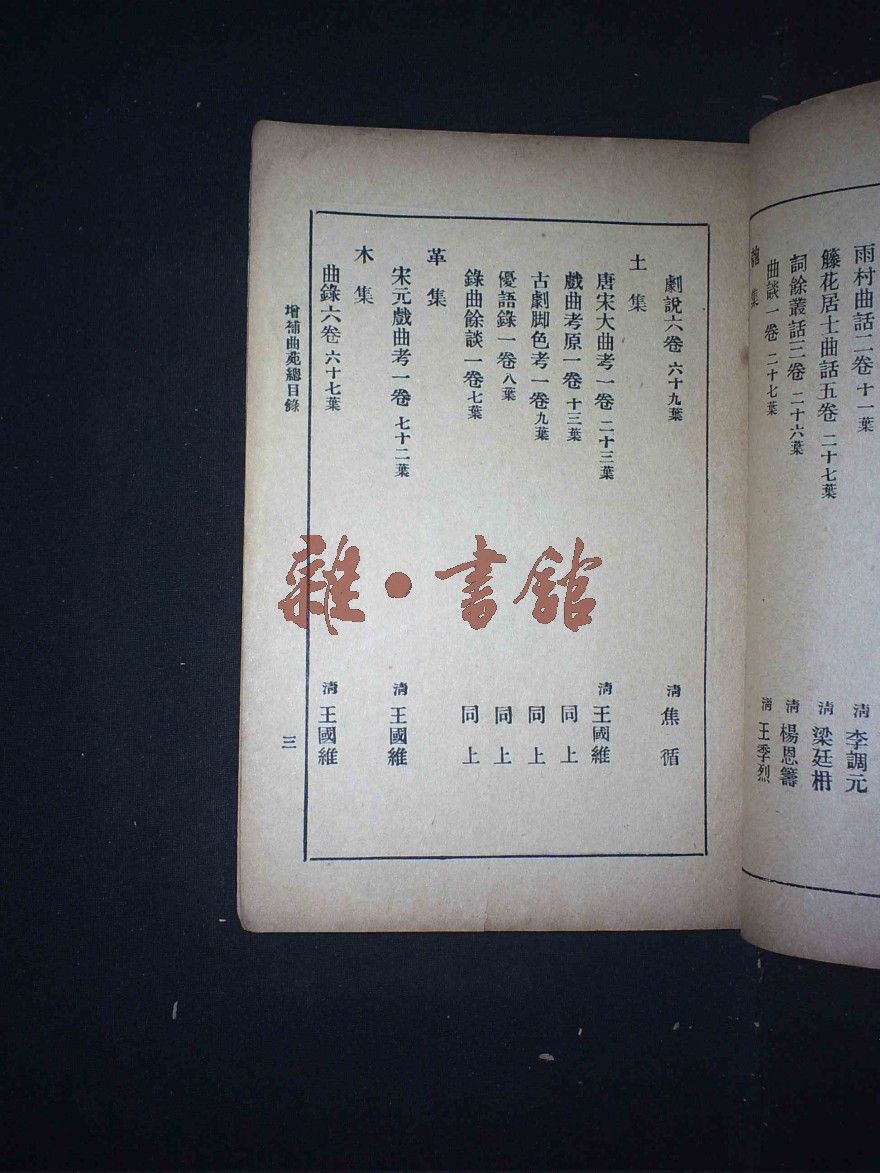 雨村曲話二卷 十一葉 清 李調元
籐花居士曲話五卷 二十七葉 清 梁廷枏
詞餘叢話三卷 二十六葉 清 楊恩籌
曲談一卷 二十七葉 清 王季烈
匏集
劇說六卷 六十九葉 清 焦循
土集
唐宋大曲考一卷 二十三葉 清 王國維
戲曲考原一卷 十三葉 同上
古劇脚色考一卷 九葉 同上
優語錄一卷 八葉 同上
錄曲餘談一卷 七葉 同上
革集
宋元戲曲考一卷 七十二葉 清 王國維
木集
曲錄六卷 六十七葉 清 王國維
增補曲苑總目錄 三
雜·書館